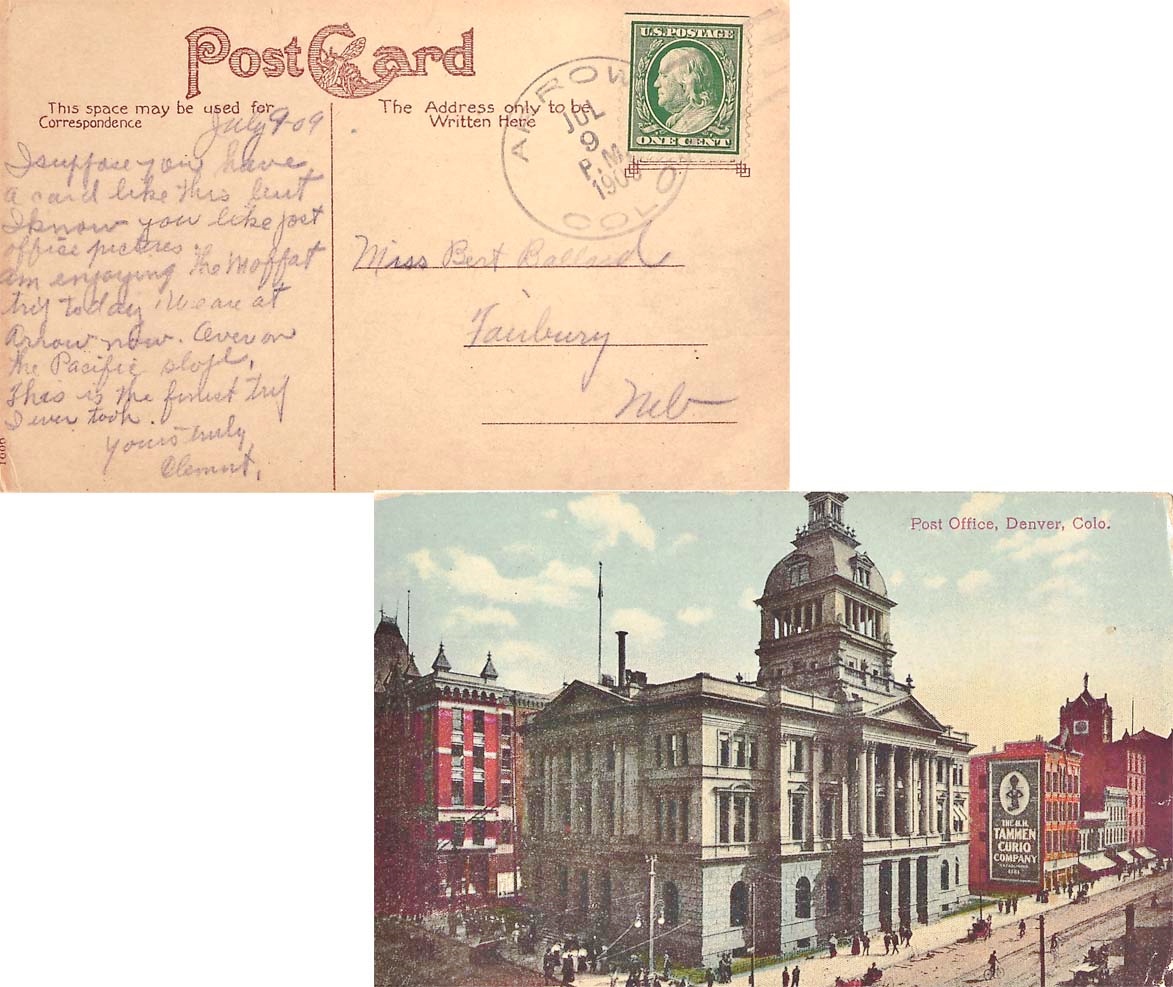 Post Card
U.S. POSTAGE
ONE CENT
This space may be used for
Correspondence
The Address only to be
Written Here
ARROW
JUL
9
P.M.
COLO
July 9-09
I suppose you have
a card like this but
I know you like post
office pictures.
Am enjoying the Moffat
trip today. We are at
Arrow now. Over on
the Pacific slope.
This is the finest trip
I ever took.
Yours truly,
Clement.
Miss Bert Ballard
Fairbury
Neb
Post Office, Denver, Colo.
THE H.H.
TAMMEN
CURIO
COMPANY
ESTABLISHED
1881